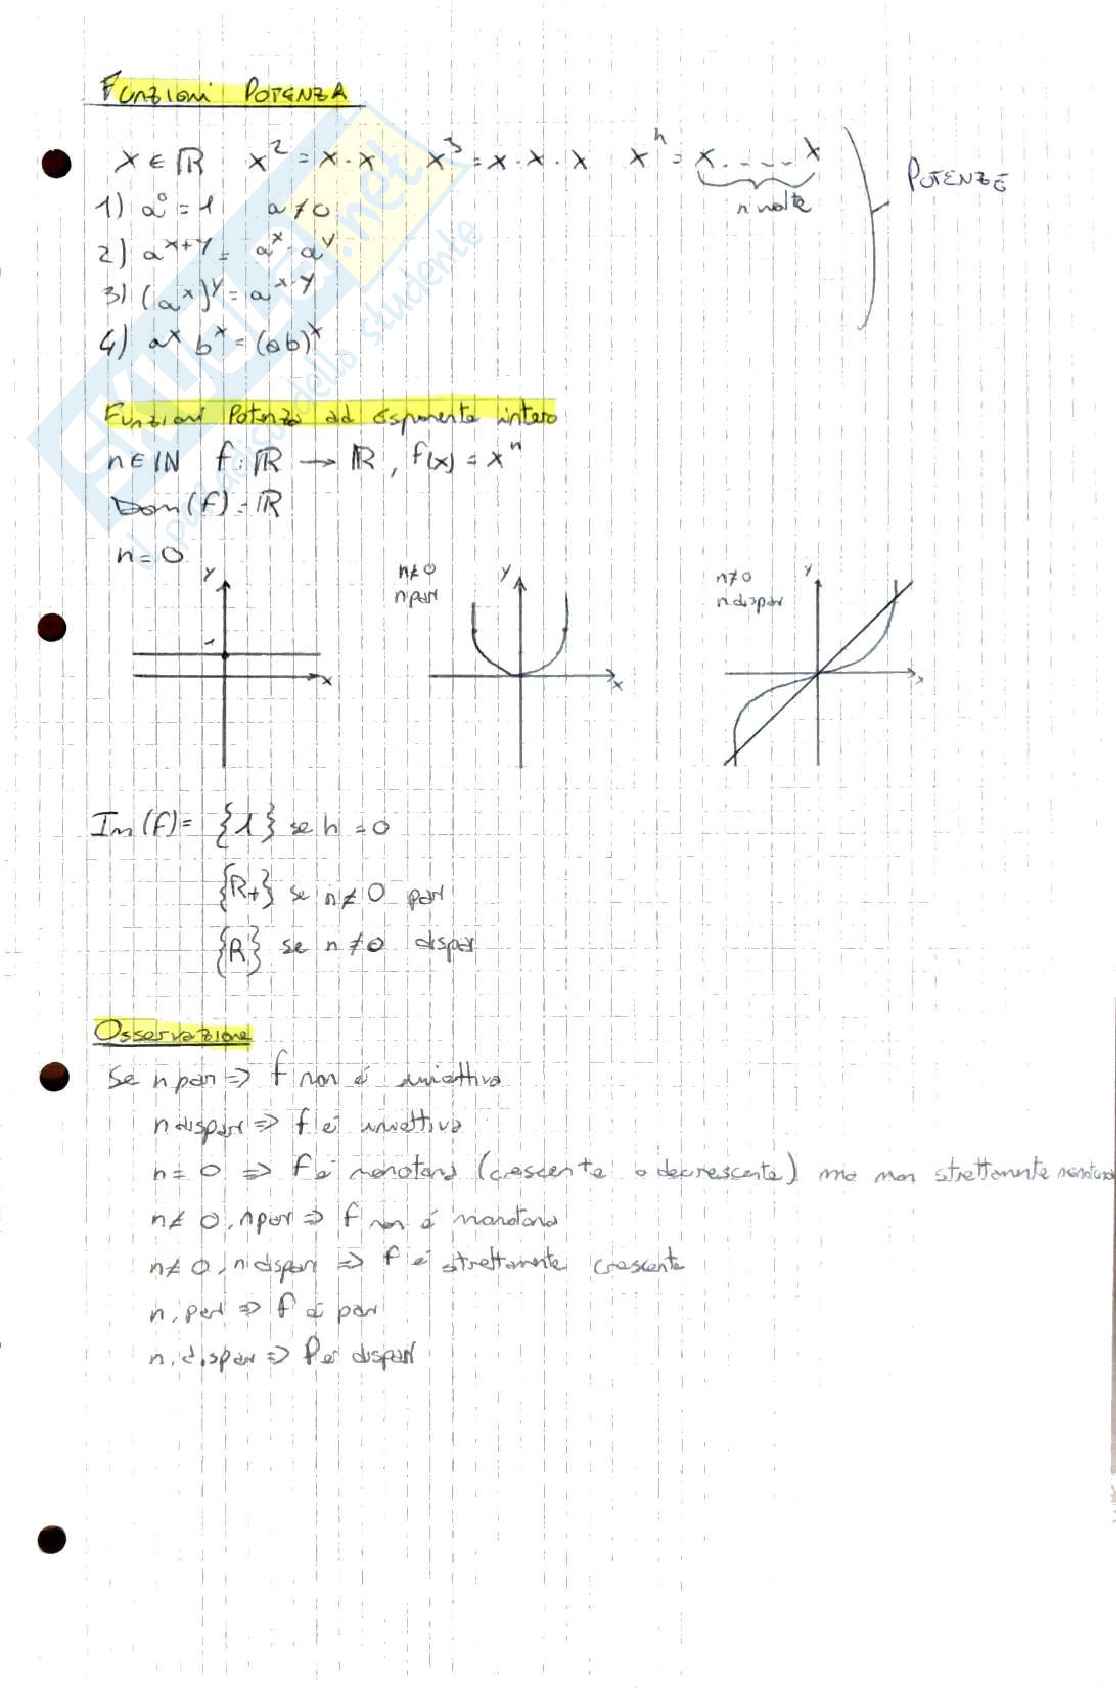 Funzioni POTENZA
x ∈ ℝ x² = x · x x³ = x · x · x xⁿ = x · - - - x
n volte
POTENZE
1) a⁰ = 1 a ≠ 0
2) a^(x+y) = a^x · a^y
3) (a^x)^y = a^(x·y)
4) a^x b^x = (ab)^x
Funzioni Potenza ad esponente intero
n ∈ ℕ f: ℝ → ℝ, f(x) = xⁿ
Dom(f) = ℝ
n = 0
y
1
x
n ≠ 0
n pari
y
x
n ≠ 0
n dispari
y
x
Im(f) = {1} se n = 0
{R+} se n ≠ 0 pari
{R} se n ≠ 0 dispari
Osservazione
Se n pari => f non è iniettiva
n dispari => f è iniettiva
n = 0 => f è monotona (crescente o decrescente) ma non strettamente monotona
n ≠ 0, n pari => f non è monotona
n ≠ 0, n dispari => f è strettamente crescente
n. pari => f è pari
n. dispari => f è dispari
skuola.net
il paradiso dello studente